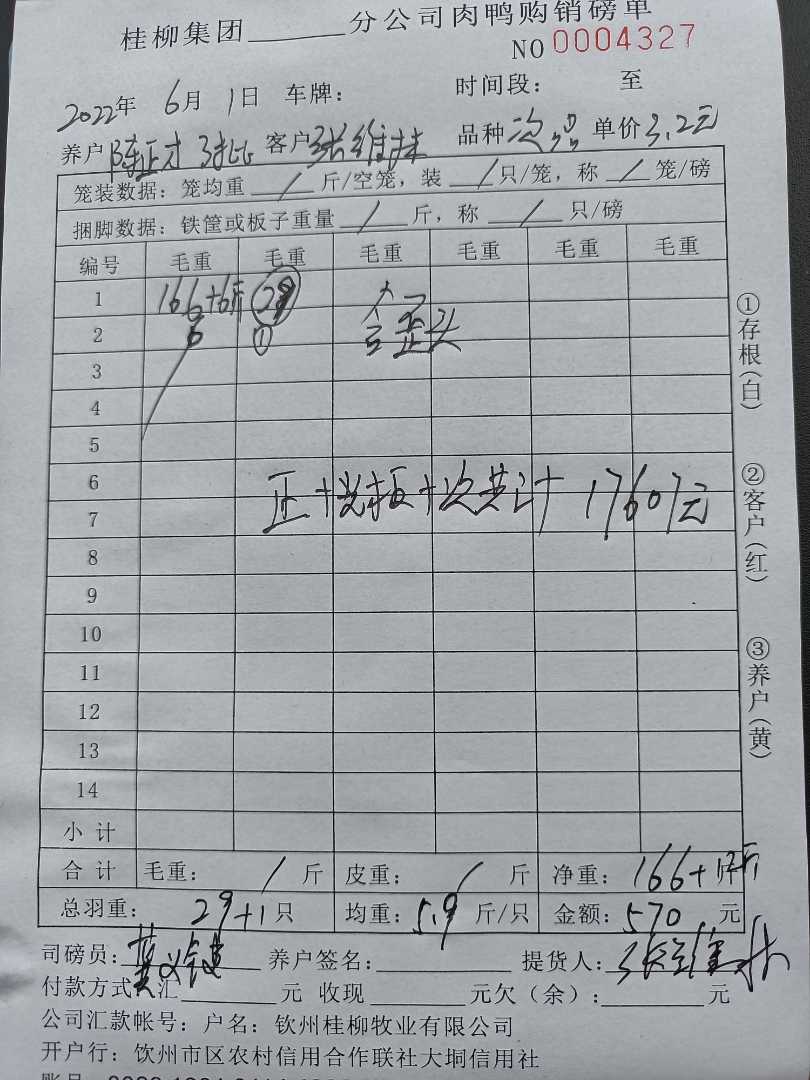 桂柳集团______分公司肉鸭购销磅单
NO 0004327
2022年 6月 1日 车牌： 时间段： 至
养户 陈正才 3批 客户 张维林 品种 次品 单价 3.2元
笼装数据：笼均重 / 斤/空笼，装 / 只/笼，称 / 笼/磅
捆脚数据：铁筐或板子重量 / 斤，称 / 只/磅
编号 毛重 毛重 毛重 毛重 毛重 毛重
1 166+6斤 29
2 6 ① 含歪头
3
4
5
6
7
正+光板+次共计 17607元
8
9
10
11
12
13
14
小 计
合 计 毛重： / 斤 皮重： / 斤 净重：166+
总羽重： 29+1 只 均重：5.9 斤/只 金额：570 元
司磅员： 养户签名： 提货人：张维林
付款方式：汇______元 收现______元欠（余）：______元
公司汇款帐号：户名：钦州桂柳牧业有限公司
开户行：钦州市区农村信用合作联社大垌信用社
①存根（白）
②客户（红）
③养户（黄）